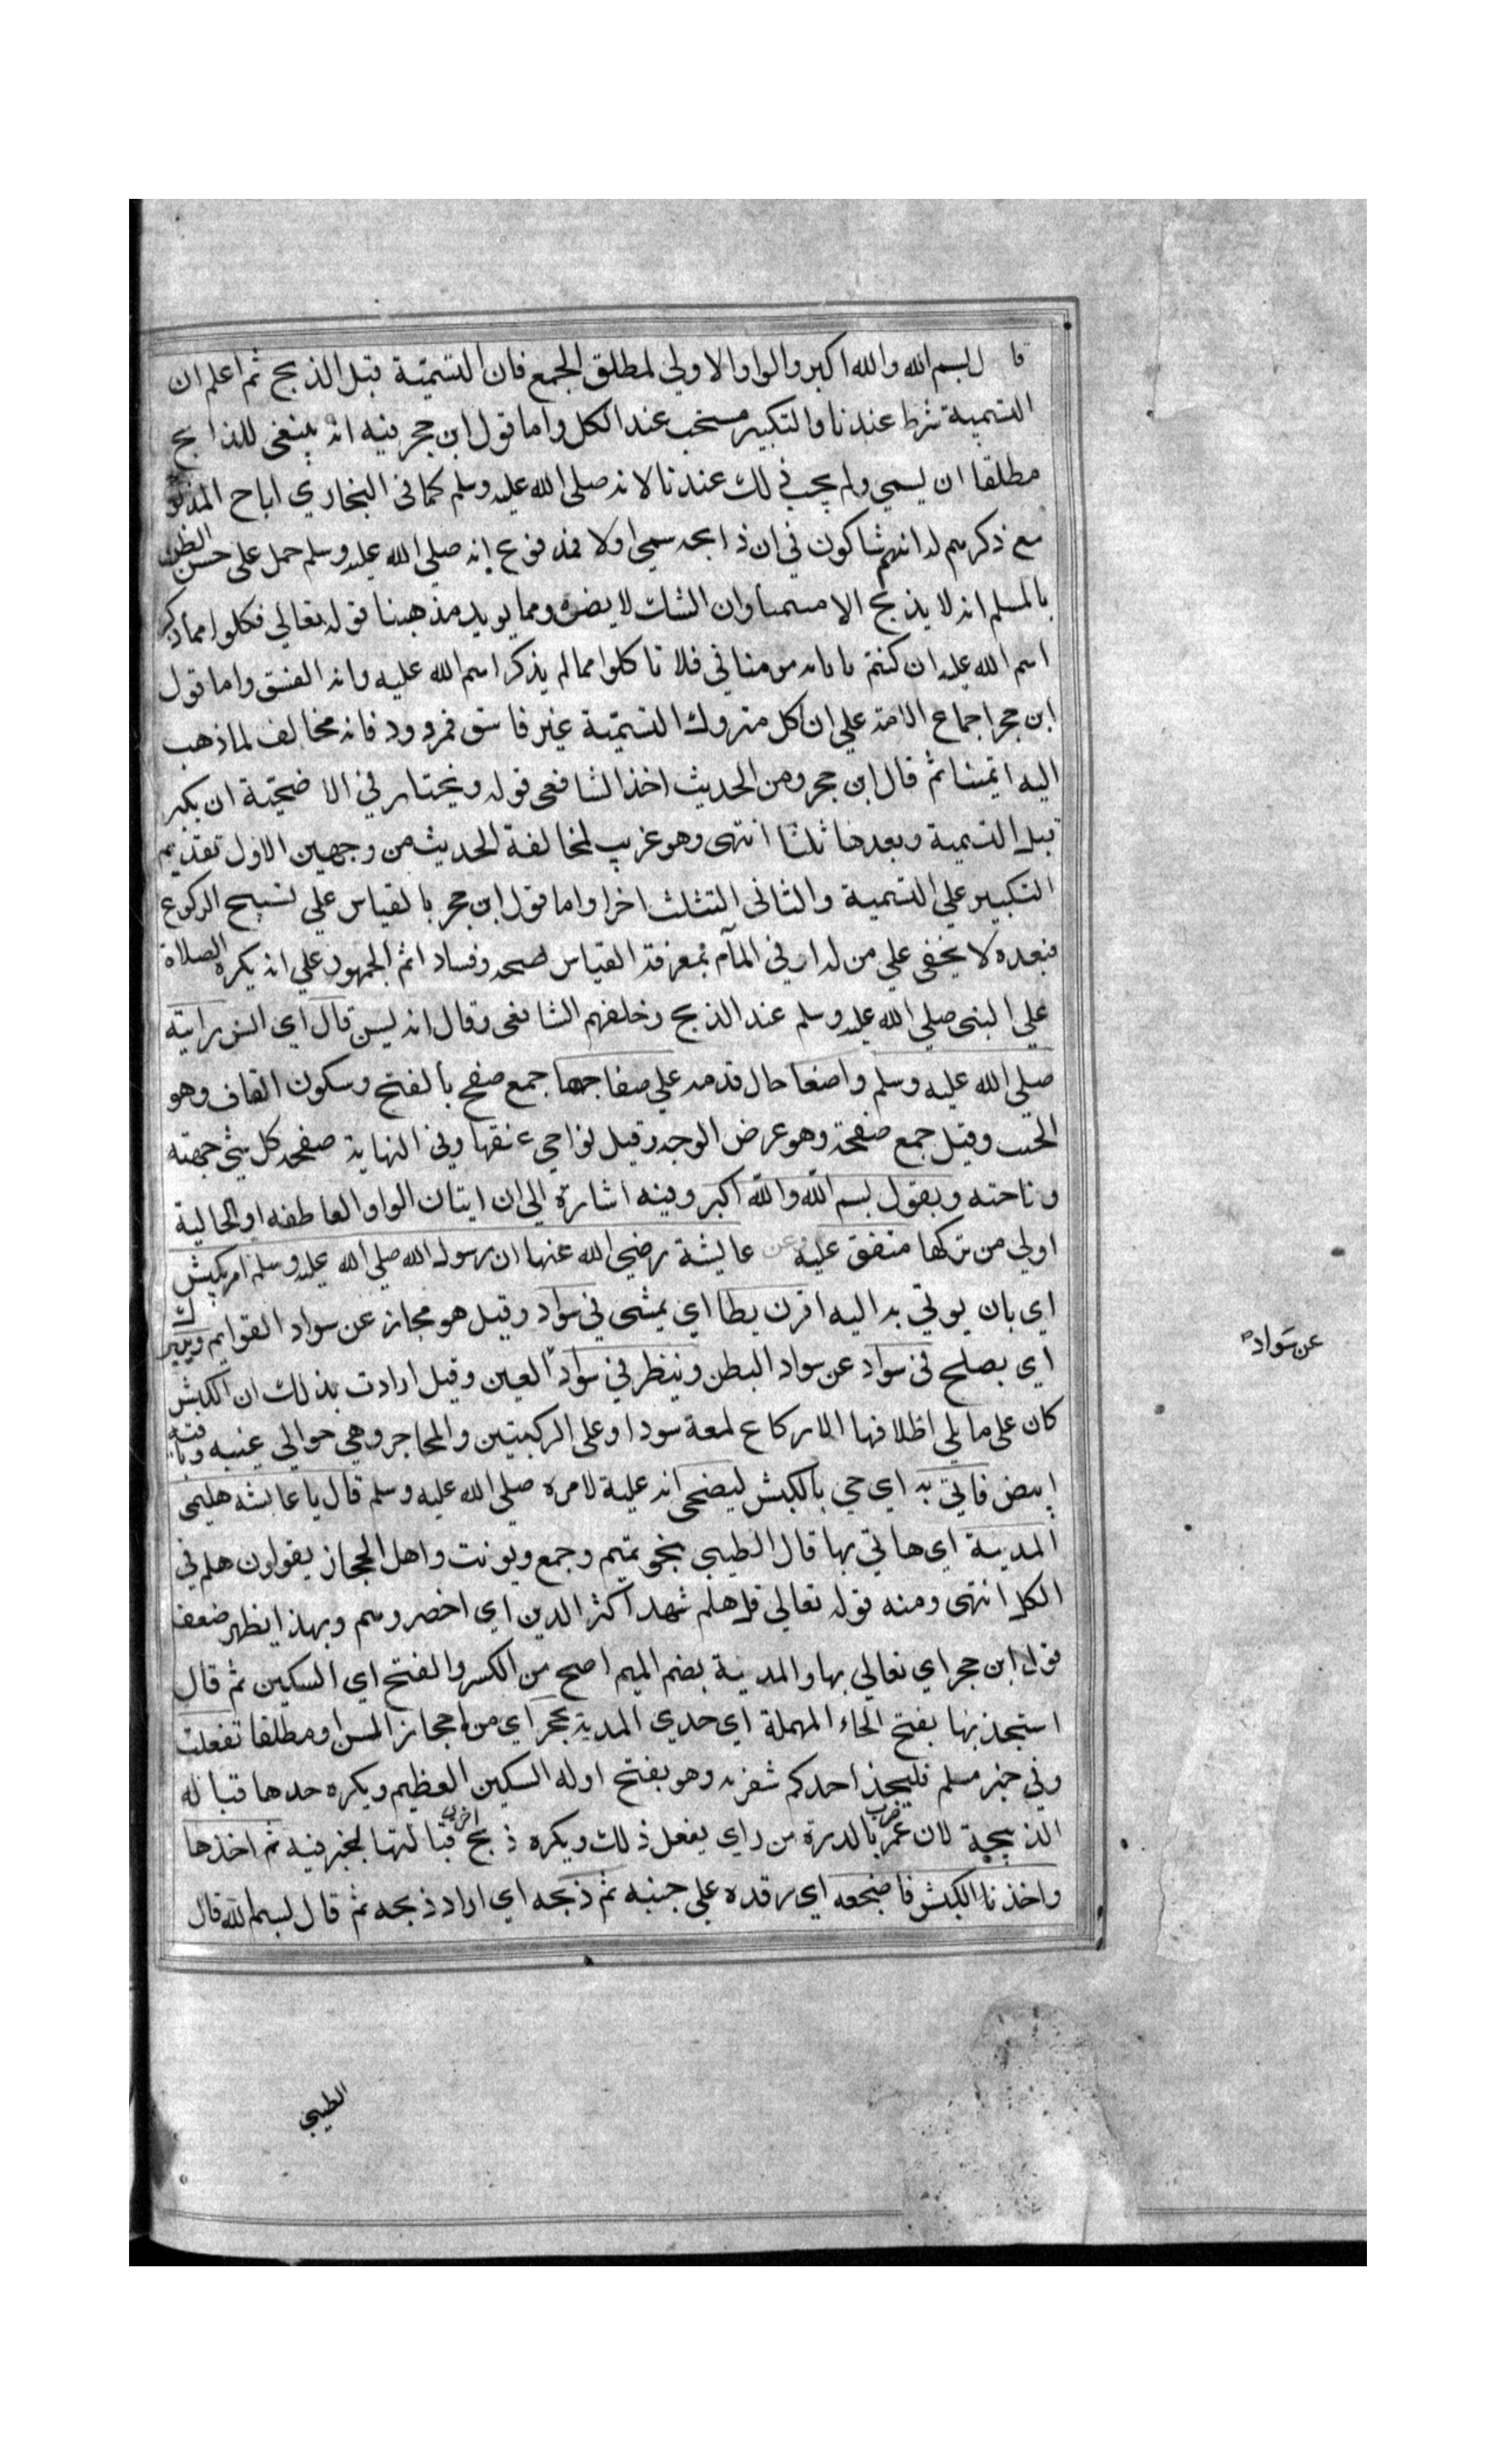 قا ل بسم الله والله اكبر والواو الاولي لمطلق الجمع فان التسمية قبل الذبح ثم اعلم ان
التسمية شرط عندنا والتكبير مستحب عند الكل واما قول ابن حجر فيه انه ينبغي للذابح
مطلقا ان يسمي ولم يجب ذلك عندنا لانه صلي الله عليه وسلم كما في البخاري اباح المذبوح
مع ذكرهم له انهم شاكون في ان ذابحه سمي اولا فمدفوع بانه صلي الله عليه وسلم حمل علي حسن الظن
بالمسلم انه لا يذبح الا مسميا وان الشك لا يضره ومما يويد مذهبنا قوله تعالي فكلوا مما ذكر
اسم الله عليه ان كنتم باياته مومنا في فلا تاكلوا مما لم يذكر اسم الله عليه وانه الفسق واما قول
ابن حجر اجماع الامة علي ان اكل متروك التسمية غير فاسق فمردود فانه مخالف لما ذهب
اليه ايمتنا ثم قال ابن حجر ومن الحديث اخذ الشافعي قوله ويختار في الاضحية ان يكبر
قبل التسمية وبعدها ثلثا انتهي وهو غريب لمخالفة الحديث من وجهين الاول تقديم
التكبير علي التسمية والثاني التثلث اخرا واما قول ابن حجر بالقياس علي تسبيح الركوع
فبعده لا يخفي علي من له ادني المام بمعرفة القياس صحه وفساد اثم الجمهور علي انه يكره الصلاة
علي النبي صلي الله عليه وسلم عند الذبح وخلفهم الشافعي وقال انه ليسن قال اي انس رايته
صلي الله عليه وسلم واضعا حال قدمه علي صفاحها جمع صفح بالفتح وسكون القاف وهو
الجنب وقيل جمع صفحة وهو عرض الوجه وقيل نواحي عنقها وفي النهاية صفحة كل شي جهته
وناحته ويقول بسم الله والله اكبر وفيه اشارة الي ان ايتان الواو العاطفه او الحالية
اولي من تركها متفق عليه وعن عايشة رضي الله عنها ان رسول الله صلي الله عليه وسلم امر بكبش
اي بان يوتي به اليه اقرن يطا اي يمشي في سواد وقيل هو مجاز عن سواد القوايم ويبرك
اي بصلح في سواد عن سواد البطن وينظر في سواد العين وقيل ارادت بذلك ان الكبش
عن سواد
كان علي ما يلي اظلافها الاركاع لمعة سودا وعلي الركبتين والمحاجر وهي حوالي عنيه وباقيه
ابيض فاتي به اي جي بالكبش ليضحي انه علية لامره صلي الله عليه وسلم قال يا عايشه هلمي
المدينة اي هاتي بها قال الطيبي بخو تميم وجمع ويونث واهل الحجاز يقولون هلم في
الكل انتهي ومنه قوله تعالي قل هلم شهدا كثر الدين اي احضروهم وبهذا يظهر ضعف
قول ابن حجر اي تعالي بها والمدينة بضم الميم اصح من الكسر والفتح اي السكين ثم قال
استحذيها بفتح الحاء المهملة اي حدي المدية بحجر اي من احجاز المسن او مطلقا تفعلت
وفي خبر مسلم فليحذ احدكم شفرته وهو بفتح اوله السكين العظيم ويكره حدها قباله
الذبيحة لان عمر ضرب بالدرة من راي يفعل ذلك ويكره ذبح اخري قبالتها لخبر فيه ثم اخذها
واخذنا الكبش فاضجعه اي رقده علي جنبه ثم ذبحه اي اراد ذبحه ثم قال بسم الله قال
الطيبي